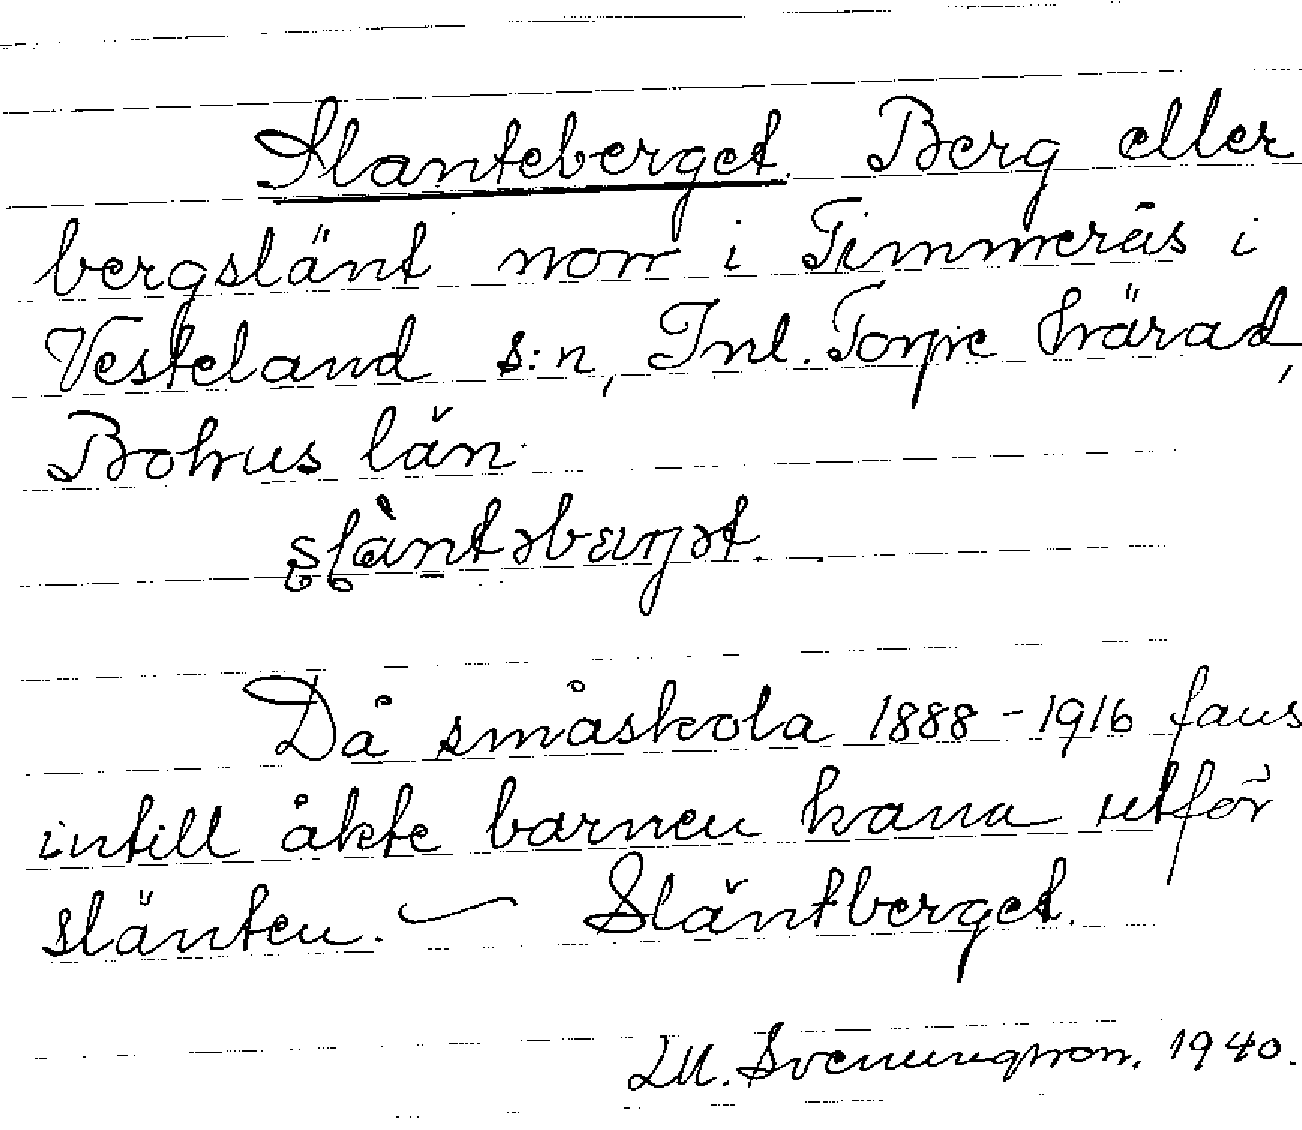 Slanteberget. Berg eller
bergslänt norr i Timmerås i
Vesteland s:n, Inl. Torpe härad,
Bohus län.
Då småskola 1888-1916 fans
intill åkte barnen kana utför
slänten. — Släntberget.
1940.